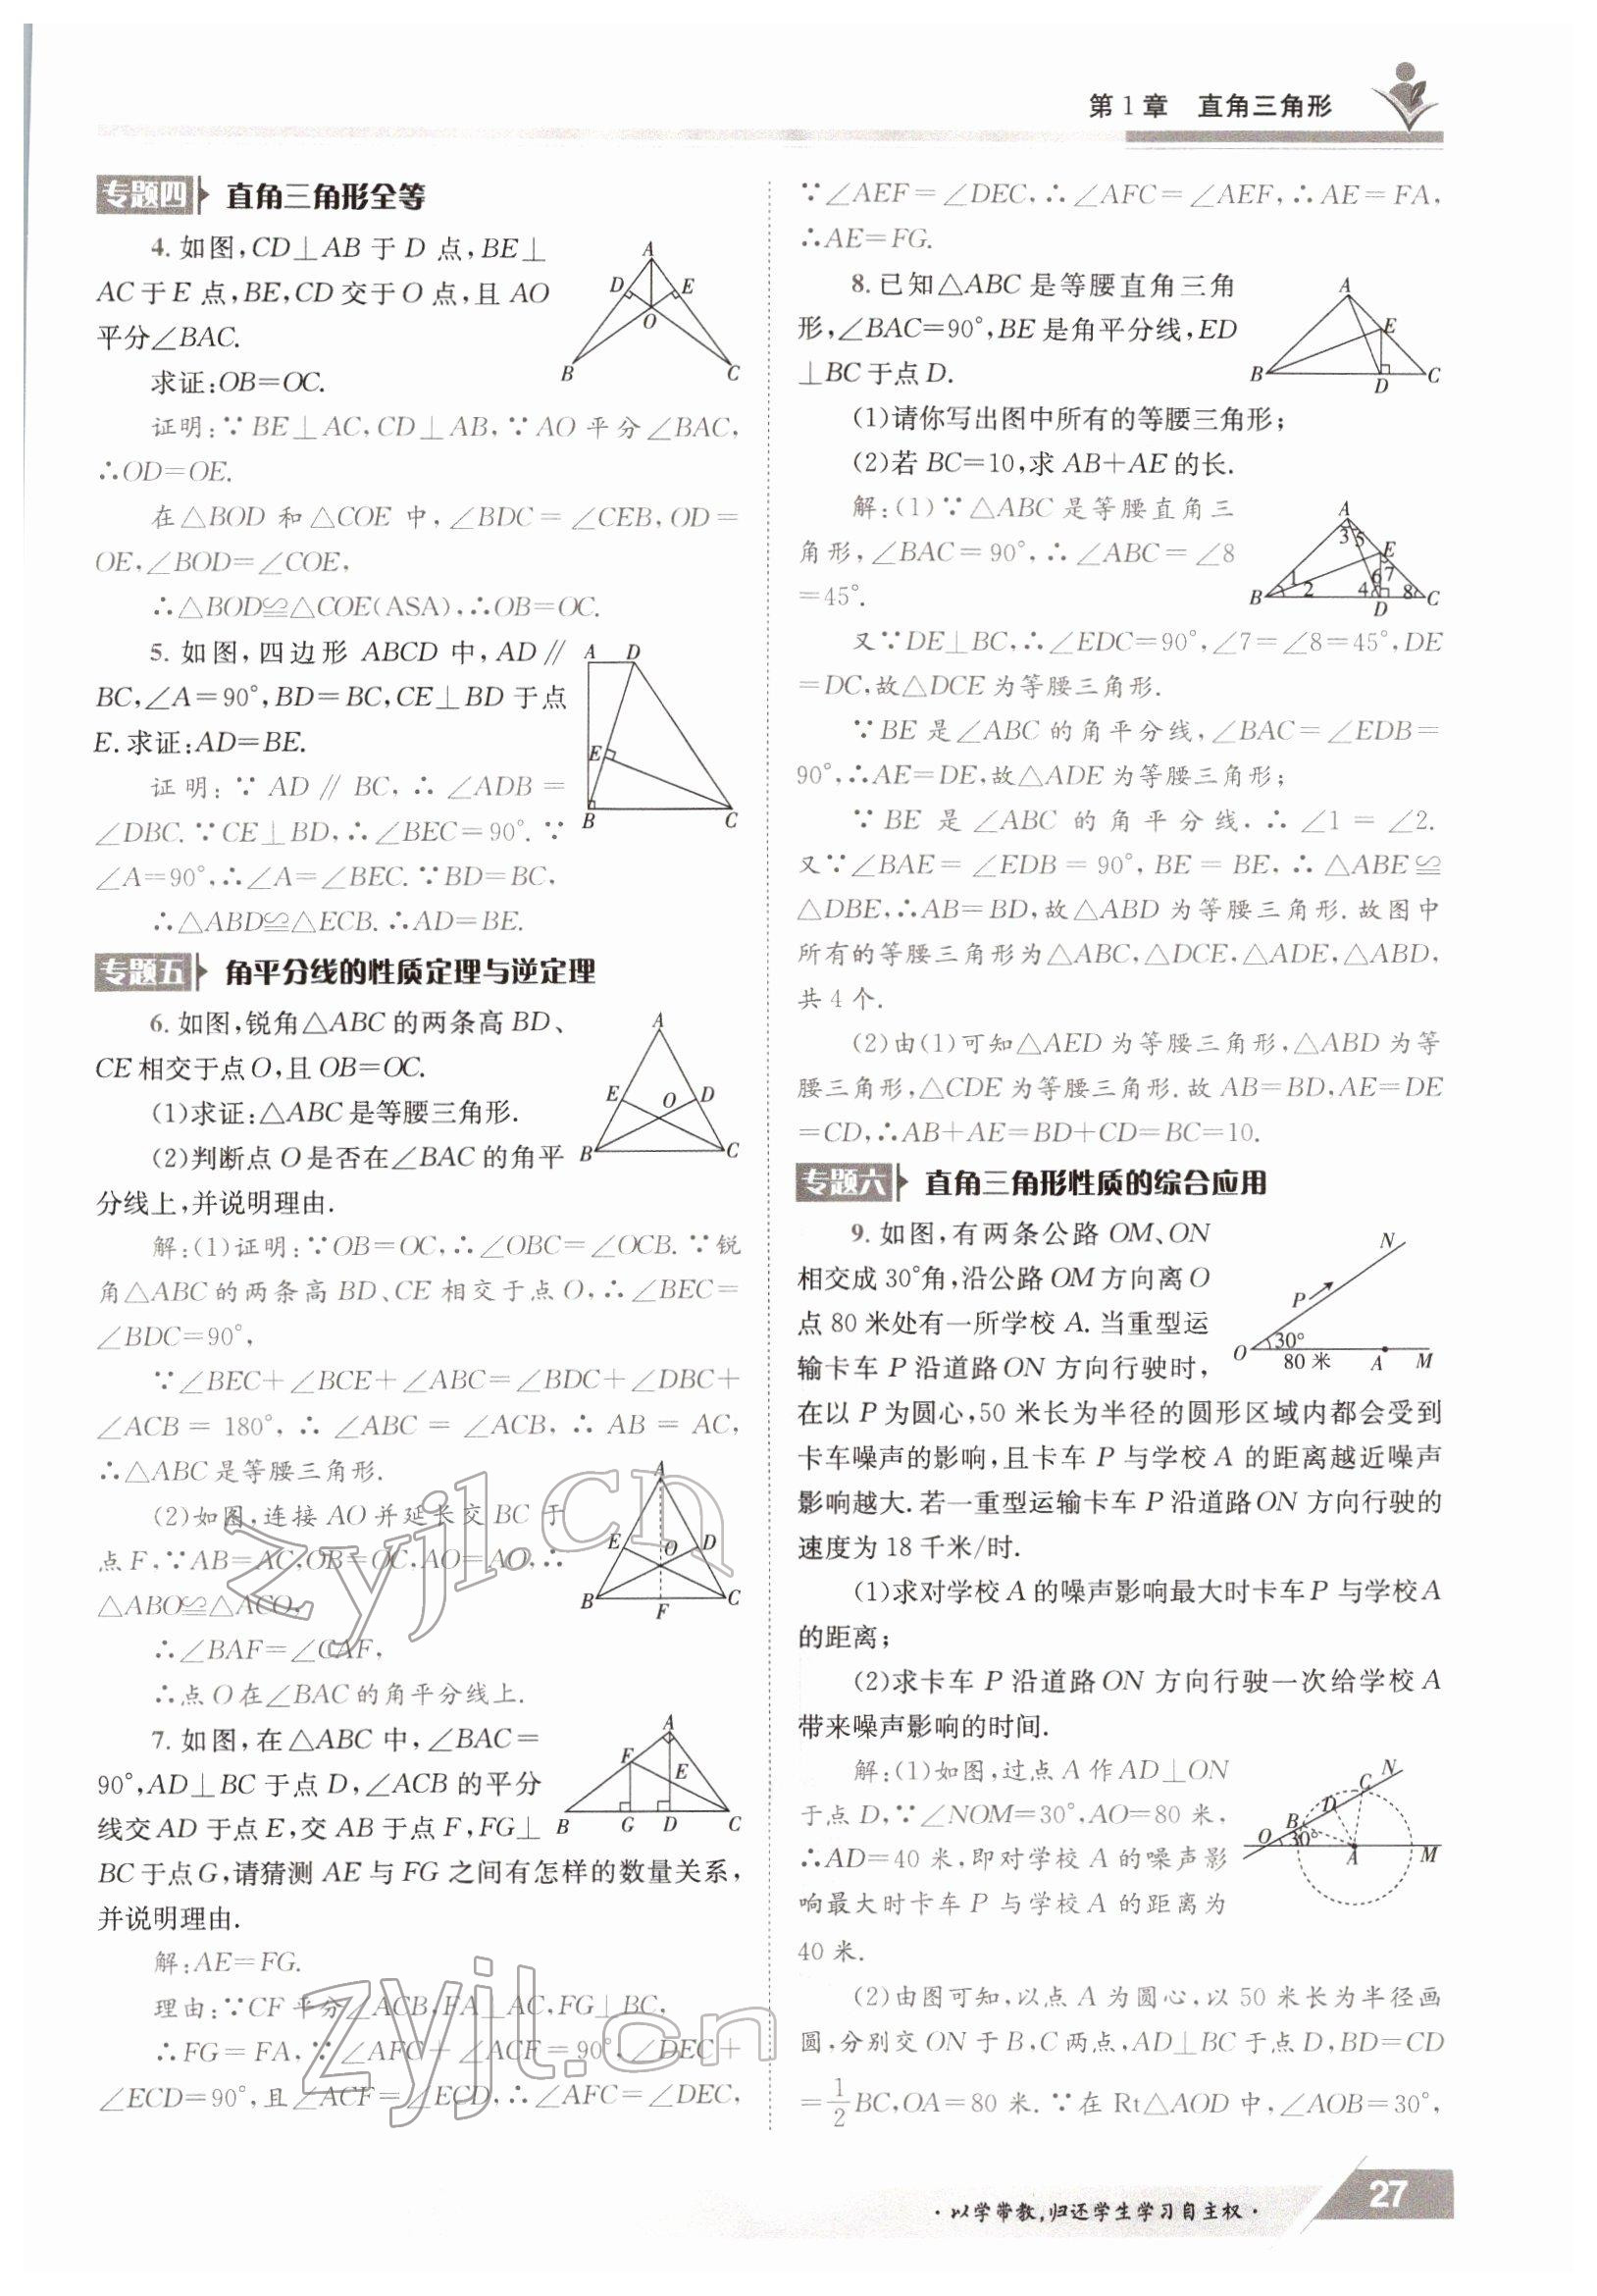 第1章 直角三角形
专题四 直角三角形全等
4. 如图,CD⊥AB 于 D 点,BE⊥
AC于E 点,BE,CD交于O 点,且 AO
平分∠BAC.
求证:OB=OC.
证明:∵BE⊥AC,CD⊥AB,∵AO平分∠BAC,
∴OD=OE.
在△BOD 和△COE 中,∠BDC=∠CEB,OD=
OE,∠BOD=∠COE,
∴△BOD≌△COE(ASA),∴OB=OC.
A
D
E
O
B
C
5. 如图,四边形 ABCD 中,AD∥
BC,∠A=90°,BD=BC,CE⊥BD 于点
E.求证:AD=BE.
证明:∵AD∥BC,∴∠ADB=
∠DBC.∵CE⊥BD,∴∠BEC=90°.∵
∠A=90°,∴∠A=∠BEC.∵BD=BC,
∴△ABD≌△ECB.∴AD=BE.
A D
E
B C
专题五 角平分线的性质定理与逆定理
6.如图,锐角△ABC的两条高BD、
CE相交于点O,且OB=OC.
(1)求证:△ABC是等腰三角形.
(2)判断点O是否在∠BAC的角平
分线上,并说明理由.
A
E O D
B C
解:(1)证明:∵OB=OC,∴∠OBC=∠OCB.∵锐
角△ABC的两条高BD、CE相交于点O,∴∠BEC=
∠BDC=90°,
∵∠BEC+∠BCE+∠ABC=∠BDC+∠DBC+
∠ACB=180°,∴∠ABC=∠ACB,∴AB=AC,
∴△ABC是等腰三角形.
(2)如图,连接AO并延长交BC于
点F,∵AB=AC,OB=OC,AO=AO,∴
△ABO≌△ACO,
∴∠BAF=∠CAF,
∴点O在∠BAC的角平分线上.
A
E O D
B F C
7.如图,在△ABC中,∠BAC=
90°,AD⊥BC于点D,∠ACB的平分
线交AD于点E,交AB于点F,FG⊥
BC于点G,请猜测AE与FG之间有怎样的数量关系,
并说明理由.
A
F
E
B G D C
解:AE=FG.
理由:∵CF平分∠ACB,FA⊥AC,FG⊥BC,
∴FG=FA,∵∠AFC+∠ACF=90°,∠DEC+
∠ECD=90°,且∠ACF=∠ECD,∴∠AFC=∠DEC,
∵∠AEF=∠DEC,∴∠AFC=∠AEF,∴AE=FA,
∴AE=FG.
8.已知△ABC是等腰直角三角
形,∠BAC=90°,BE是角平分线,ED
⊥BC于点D.
(1)请你写出图中所有的等腰三角形;
(2)若BC=10,求AB+AE的长.
A
E
B D C
解:(1)∵△ABC是等腰直角三
角形,∠BAC=90°,∴∠ABC=∠8
=45°.
A
3 5
E
1 6 7
B 2 4 8 C
D
又∵DE⊥BC,∴∠EDC=90°,∠7=∠8=45°,DE
=DC,故△DCE为等腰三角形.
∵BE是∠ABC的角平分线,∠BAC=∠EDB=
90°,∴AE=DE,故△ADE为等腰三角形;
∵BE是∠ABC的角平分线,∴∠1=∠2.
又∵∠BAE=∠EDB=90°,BE=BE,∴△ABE≌
△DBE,∴AB=BD,故△ABD为等腰三角形.故图中
所有的等腰三角形为△ABC,△DCE,△ADE,△ABD,
共4个.
(2)由(1)可知△AED为等腰三角形,△ABD为等
腰三角形,△CDE为等腰三角形.故AB=BD,AE=DE
=CD,∴AB+AE=BD+CD=BC=10.
专题六 直角三角形性质的综合应用
9.如图,有两条公路OM、ON
相交成30°角,沿公路OM方向离O
点80米处有一所学校A.当重型运
输卡车P沿道路ON方向行驶时,
在以P为圆心,50米长为半径的圆形区域内都会受到
卡车噪声的影响,且卡车P与学校A的距离越近噪声
影响越大.若一重型运输卡车P沿道路ON方向行驶的
速度为18千米/时.
(1)求对学校A的噪声影响最大时卡车P与学校A
的距离;
(2)求卡车P沿道路ON方向行驶一次给学校A
带来噪声影响的时间.
N
P
30°
O 80米 A M
解:(1)如图,过点A作AD⊥ON
于点D,∵∠NOM=30°,AO=80米,
∴AD=40米,即对学校A的噪声影
响最大时卡车P与学校A的距离为
40米.
N
C
D
B
O 30°
A M
(2)由图可知,以点A为圆心,以50米长为半径画
圆,分别交ON于B,C两点,AD⊥BC于点D,BD=CD
=1/2BC,OA=80米.∵在Rt△AOD中,∠AOB=30°,
·以学带教,归还学生学习自主权·
27
zyjl.cn
zyjl.cn